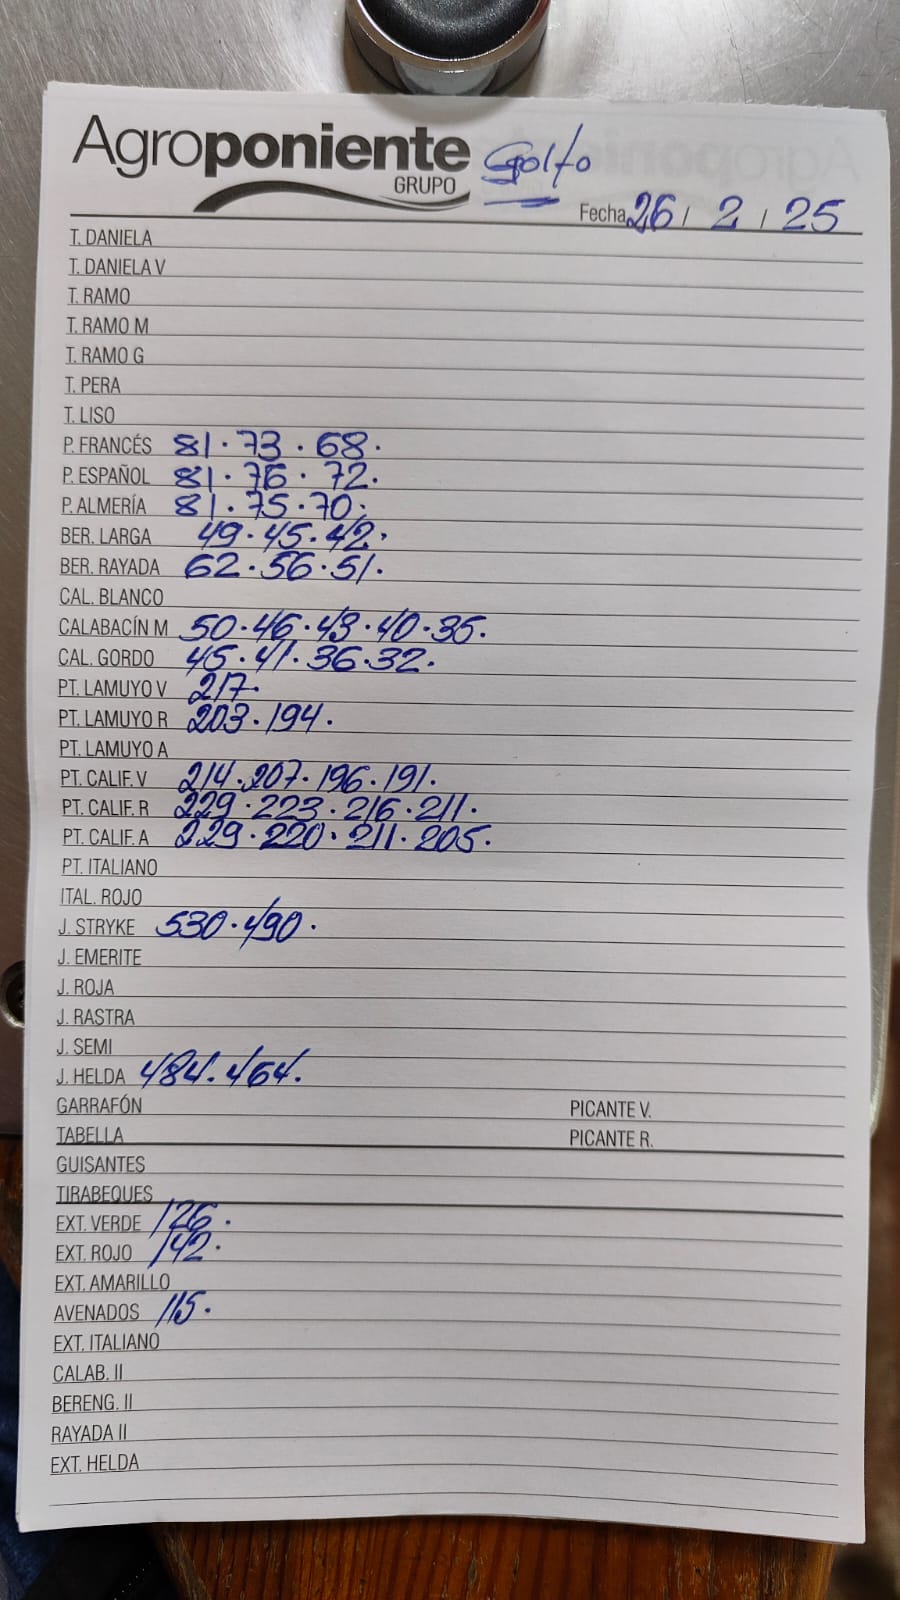 Agroponiente Golfo
GRUPO
Fecha 26 / 2 / 25
T. DANIELA
T. DANIELA V
T. RAMO
T. RAMO M
T. RAMO G
T. PERA
T. LISO
P. FRANCÉS 81 · 73 · 68.
P. ESPAÑOL 81 · 76 · 72.
P. ALMERÍA 81 · 75 · 70.
BER. LARGA 49 · 45 · 42.
BER. RAYADA 62 · 56 · 51.
CAL. BLANCO
CALABACÍN M 50 · 46 · 43 · 40 · 35.
CAL. GORDO 45 · 41 · 36 · 32.
PT. LAMUYO V 217.
PT. LAMUYO R 203 · 194.
PT. LAMUYO A
PT. CALIF. V 214 · 207 · 196 · 191.
PT. CALIF. R 229 · 223 · 216 · 211.
PT. CALIF. A 229 · 220 · 211 · 205.
PT. ITALIANO
ITAL. ROJO
J. STRYKE 530 · 490 .
J. EMERITE
J. ROJA
J. RASTRA
J. SEMI
J. HELDA 484 . 464.
GARRAFÓN PICANTE V.
TABELLA PICANTE R.
GUISANTES
TIRABEQUES
EXT. VERDE 126 .
EXT. ROJO 142 .
EXT. AMARILLO
AVENADOS 115 .
EXT. ITALIANO
CALAB. II
BERENG. II
RAYADA II
EXT. HELDA